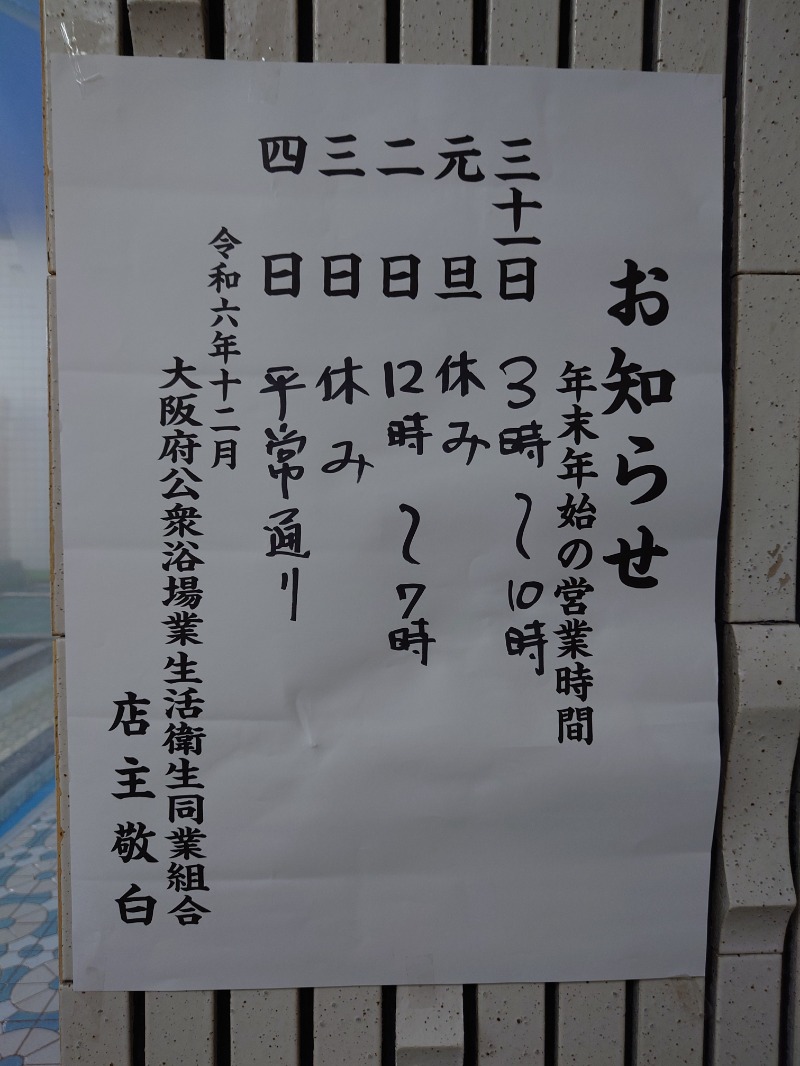 お知らせ
年末年始の営業時間
三十一日 3時〜10時
元旦 休み
二日 12時〜7時
三日 休み
四日 平常通り
令和六年十二月
大阪府公衆浴場業生活衛生同業組合
店主敬白